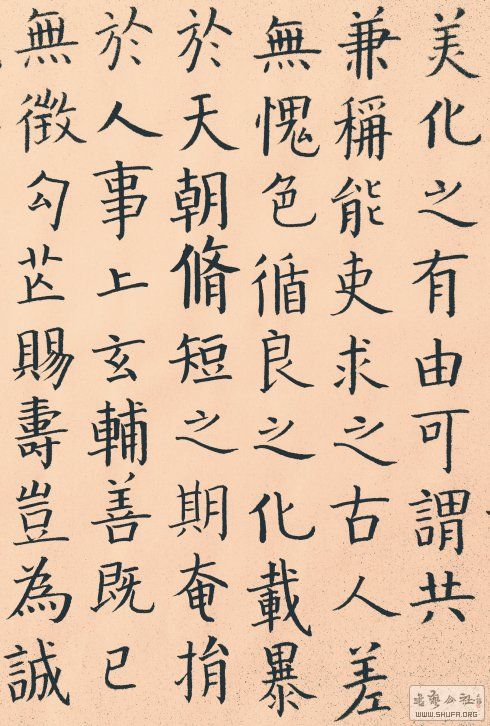 美化之有由可謂共
兼稱能吏求之古人差
無愧色循良之化載暴
於天朝脩短之期奄捐
於人事上玄輔善既已
無徵勾芒賜壽豈為誠
WWW.SHUFA.ORG